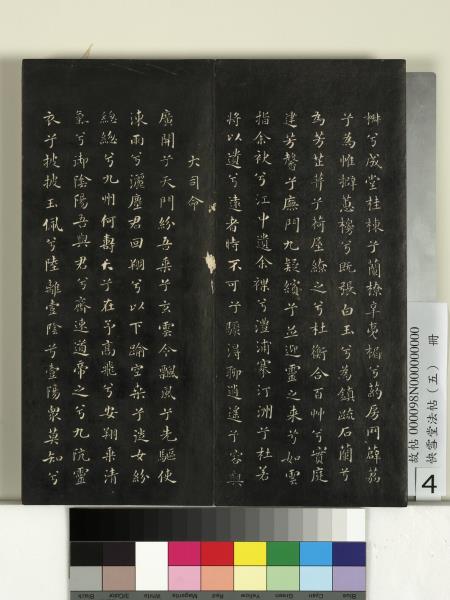 椒兮成堂桂棟兮蘭橑辛夷楣兮葯房网薜荔
兮為帷擗蕙櫋兮既張白玉兮為鎮疏石蘭兮
為芳芷葺兮荷屋繚之兮杜衡合百艸兮實庭
建芳馨兮廡門九疑繽兮並迎靈之来兮如雲
捐余袂兮江中遺余褋兮澧浦搴汀洲兮杜若
將以遺兮遠者時不可兮驟得聊逍遥兮容與
大司命
廣開兮天門紛吾乘兮玄雲令飄風兮先驅使
涷雨兮灑塵君回翔兮以下踰空桑兮從女紛
總總兮九州何壽夭兮在予高飛兮安翔乘清
氣兮御陰陽吾與君兮齋速道帝之兮九阬靈
衣兮披披玉佩兮陸離壹陰兮壹陽衆莫知兮
故帖 000098N000000000
快雪堂法帖（五） 冊
4
Blue Cyan Green Yellow Red Magenta White 3/Color Black